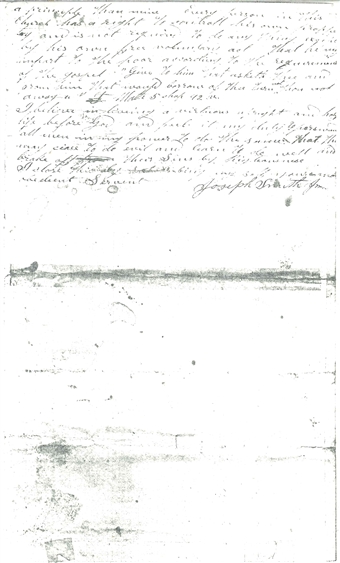 a principle than mine Every person in this
Church has a right to controll his own property
and is not required to do any thing except
by his own free voluntary act that he may
impart to the poor according to the requirements
of the gospel "Give to him that asketh thee and
from him that would borrow of thee turn thou not
away" Math 5 chap 42 v.
I believe in living a virtuous upright and holy
life before God and feel it my duty to persuade
all men in my power to do the same that they
may cease to do evil and learn to do well and
break off their sins by righteousness
I close
obedient Servent Joseph Smith Jun